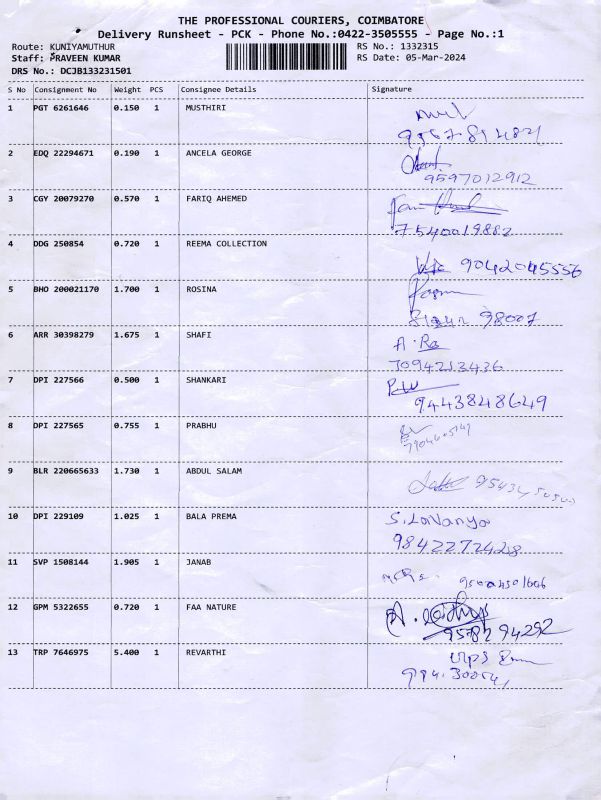 THE PROFESSIONAL COURIERS, COIMBATORE
Delivery Runsheet - PCK - Phone No.:0422-3505555 - Page No.:1
Route: KUNIYAMUTHUR RS No.: 1332315
Staff: PRAVEEN KUMAR RS Date: 05-Mar-2024
DRS No.: DCJB133231501
S No Consignment No Weight PCS Consignee Details Signature
1 PGT 6261646 0.150 1 MUSTHIRI
2 EDQ 22294671 0.190 1 ANCELA GEORGE
9597012912
3 CGY 20079270 0.570 1 FARIQ AHEMED
7540019882
4 DDG 250854 0.720 1 REEMA COLLECTION
9042045556
5 BHO 200021170 1.700 1 ROSINA
98007
6 ARR 30398279 1.675 1 SHAFI
A. Ra
7094213436
7 DPI 227566 0.500 1 SHANKARI
9443848649
8 DPI 227565 0.755 1 PRABHU
9 BLR 220665633 1.730 1 ABDUL SALAM
10 DPI 229109 1.025 1 BALA PREMA
S. Lavanya
9842272428
11 SVP 1508144 1.905 1 JANAB
12 GPM 5322655 0.720 1 FAA NATURE
9578294292
13 TRP 7646975 5.400 1 REVARTHI